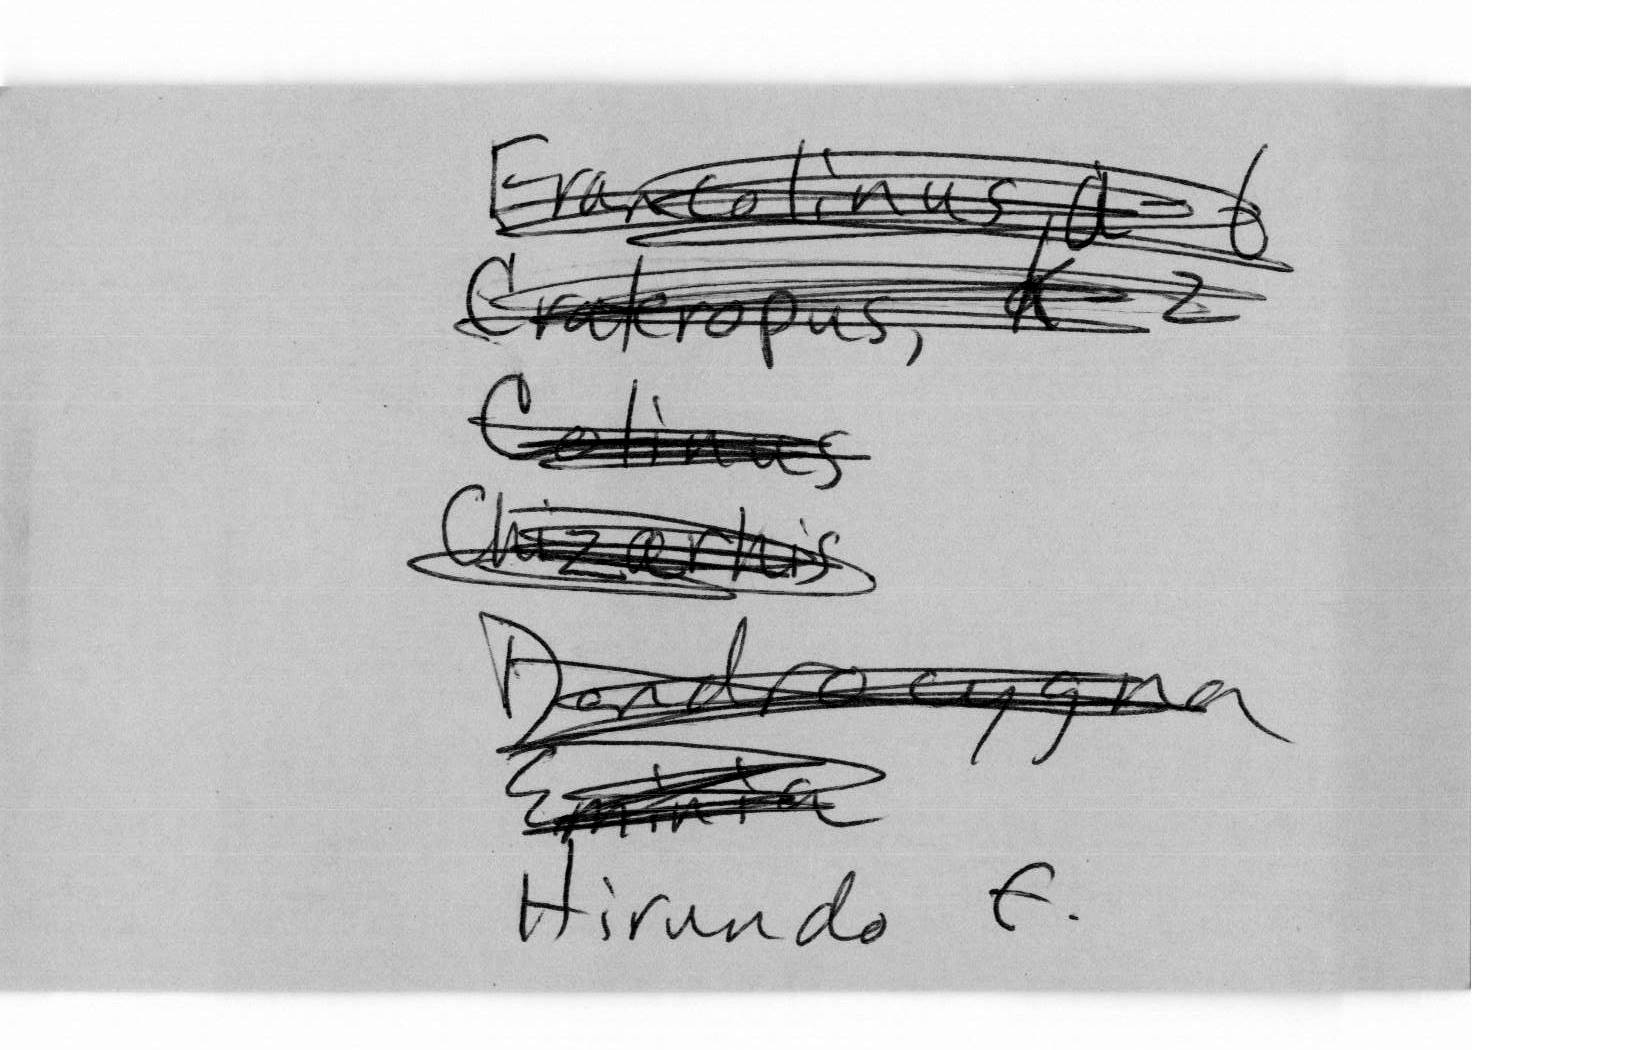 Francolinus, d - 6
Crateropus, K - z
Colinus
Chizaerhis
Dendrocygna
Eminia
Hirundo E.